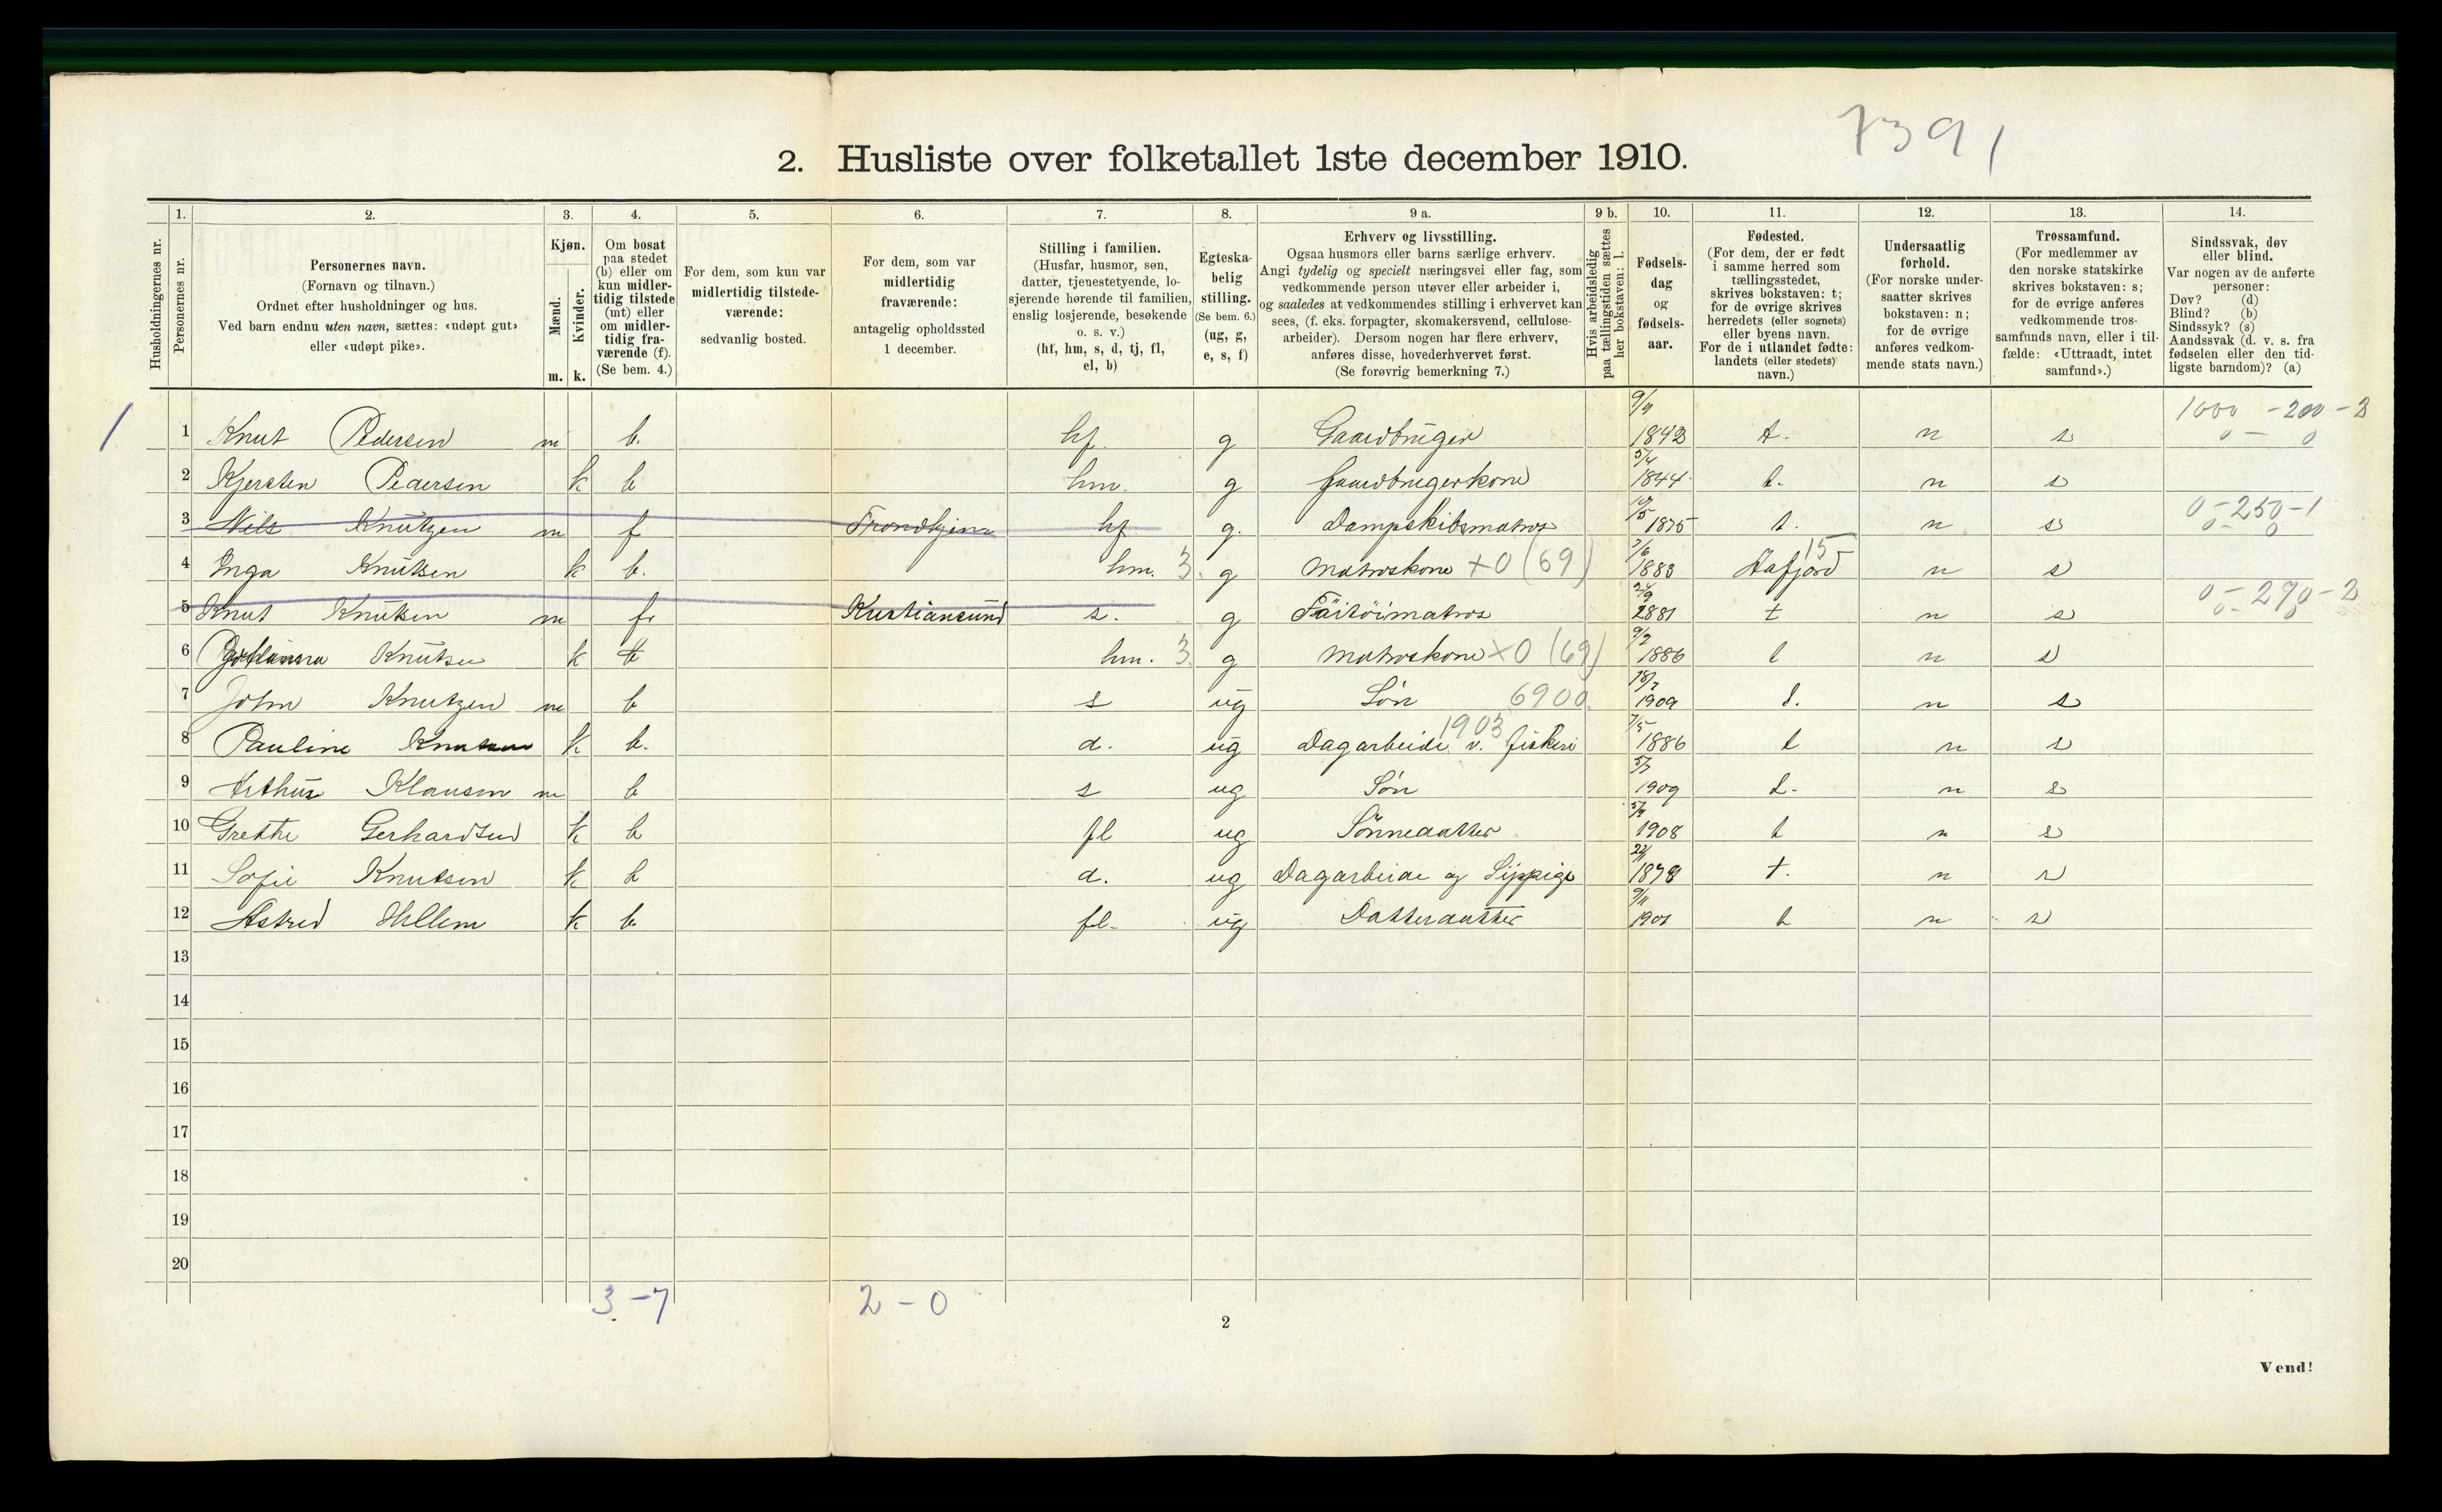 7391
2. Husliste over folketallet 1ste december 1910.
1. 2. 3. 4. 5. 6. 7. 8. 9 a. 9 b. 10. 11. 12. 13. 14.
Husholdningernes nr.
Personernes nr.
Personernes navn.
(Fornavn og tilnavn.)
Ordnet efter husholdninger og hus.
Ved barn endnu uten navn, sættes: «udøpt gut»
eller «udøpt pike».
Kjøn.
Mænd.
Kvinder.
m. k.
Om bosat
paa stedet
(b) eller om
kun midler-
tidig tilstede
(mt) eller
om midler-
tidig fra-
værende (f).
(Se bem. 4.)
For dem, som kun var
midlertidig tilstede-
værende:
sedvanlig bosted.
For dem, som var
midlertidig
fraværende:
antagelig opholdssted
1 december.
Stilling i familien.
(Husfar, husmor, søn,
datter, tjenestetyende, lo-
sjerende hørende til familien,
enslig losjerende, besøkende
o. s. v.)
(hf, hm, s, d, tj, fl,
el, b)
Egteska-
belig
stilling.
(Se bem. 6.)
(ug, g,
e, s, f)
Erhverv og livsstilling.
Ogsaa husmors eller barns særlige erhverv.
Angi tydelig og specielt næringsvei eller fag, som
vedkommende person utøver eller arbeider i,
og saaledes at vedkommendes stilling i erhvervet kan
sees, (f. eks. forpagter, skomakersvend, cellulose-
arbeider). Dersom nogen har flere erhverv,
anføres disse, hovederhvervet først.
(Se forøvrig bemerkning 7.)
Hvis arbeidsledig
paa tællingstiden sættes
her bokstaven: l.
Fødsels-
dag
og
fødsels-
aar.
Fødested.
(For dem, der er født
i samme herred som
tællingsstedet,
skrives bokstaven: t;
for de øvrige skrives
herredets (eller sognets)
eller byens navn.
For de i utlandet fødte:
landets (eller stedets)
navn.)
Undersaatlig
forhold.
(For norske under-
saatter skrives
bokstaven: n;
for de øvrige
anføres vedkom-
mende stats navn.)
Trossamfund.
(For medlemmer av
den norske statskirke
skrives bokstaven: s;
for de øvrige anføres
vedkommende tros-
samfunds navn, eller i til-
fælde: «Uttraadt, intet
samfund».)
Sindssvak, døv
eller blind.
Var nogen av de anførte
personer:
Døv? (d)
Blind? (b)
Sindssyk? (s)
Aandssvak (d. v. s. fra
fødselen eller den tid-
ligste barndom)? (a)
1 1 Knut Pedersen m b. hf g Gaardbruger 9/9 1842 t. n s 1000 - 200 - 2 0 - 0
2 Kjersten Pedersen k b hm. g Gaardbrugerkone 5/4 1844 t. n s
3 Nils Knutzen m f Trondhjem hf g. Dampskibsmatros 1875 t. n s 0 - 250 - 1 0 - 0
4 Inga Knutsen k b. hm. 3. g Matroskone x0 (69) 1883 Aafjord 15 n s
5 Knut Knutsen m f Kristiansund s. g Føitøimatros 24/9 2881 t n s 0 - 290 - 2 0 - 0
6 Knutsen k b hm. 3 g Matroskone x0 (69) 9/2 1886 t n s
7 John Knutzen m b s ug Søn 6900 18/7 1909 t. n s
8 Pauline Knutsen k b. d. ug Dagarbeide v. fiskeri 1903 7/5 1886 t n s
9 Arthur Klausen m b s ug Søn 5/7 1909 t. n s
10 Grethe Gerhardsen k b fl ug Sønnedatter 1908 t n s
11 Sofie Knutsen k b d. ug Dagarbeide og 1878 t. n s
12 Astrid Hellem k b. fl. ug Datterdatter 9/11 1901 t n s
13
14
15
16
17
18
19
20
3 - 7 2 - 0
2
Vend!